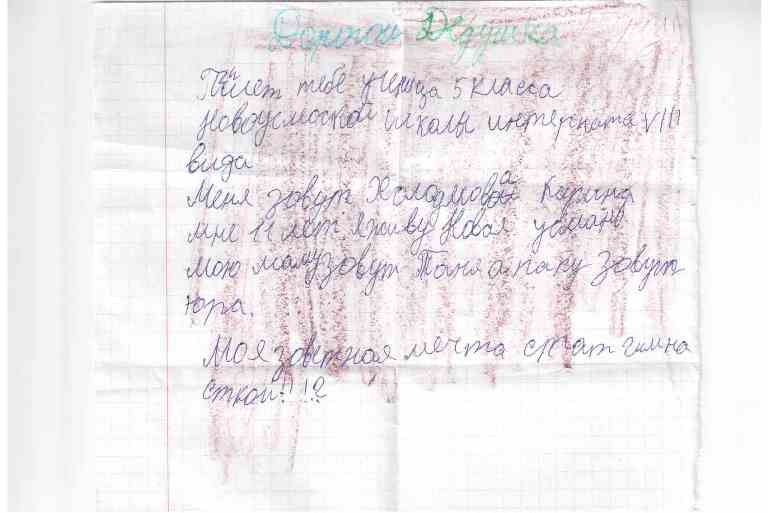 Дорогой Дедушка
Пишет тебе ученица 5 класса
Новоусмоской школы интерната VIII
вида
Меня зовут Холодкова Карина
мне 11 лет я живу Новая усмань
мою маму зовут Таня а папу зовут
юра.
Моя зоветная мечта стат гимна
сткой!!!?